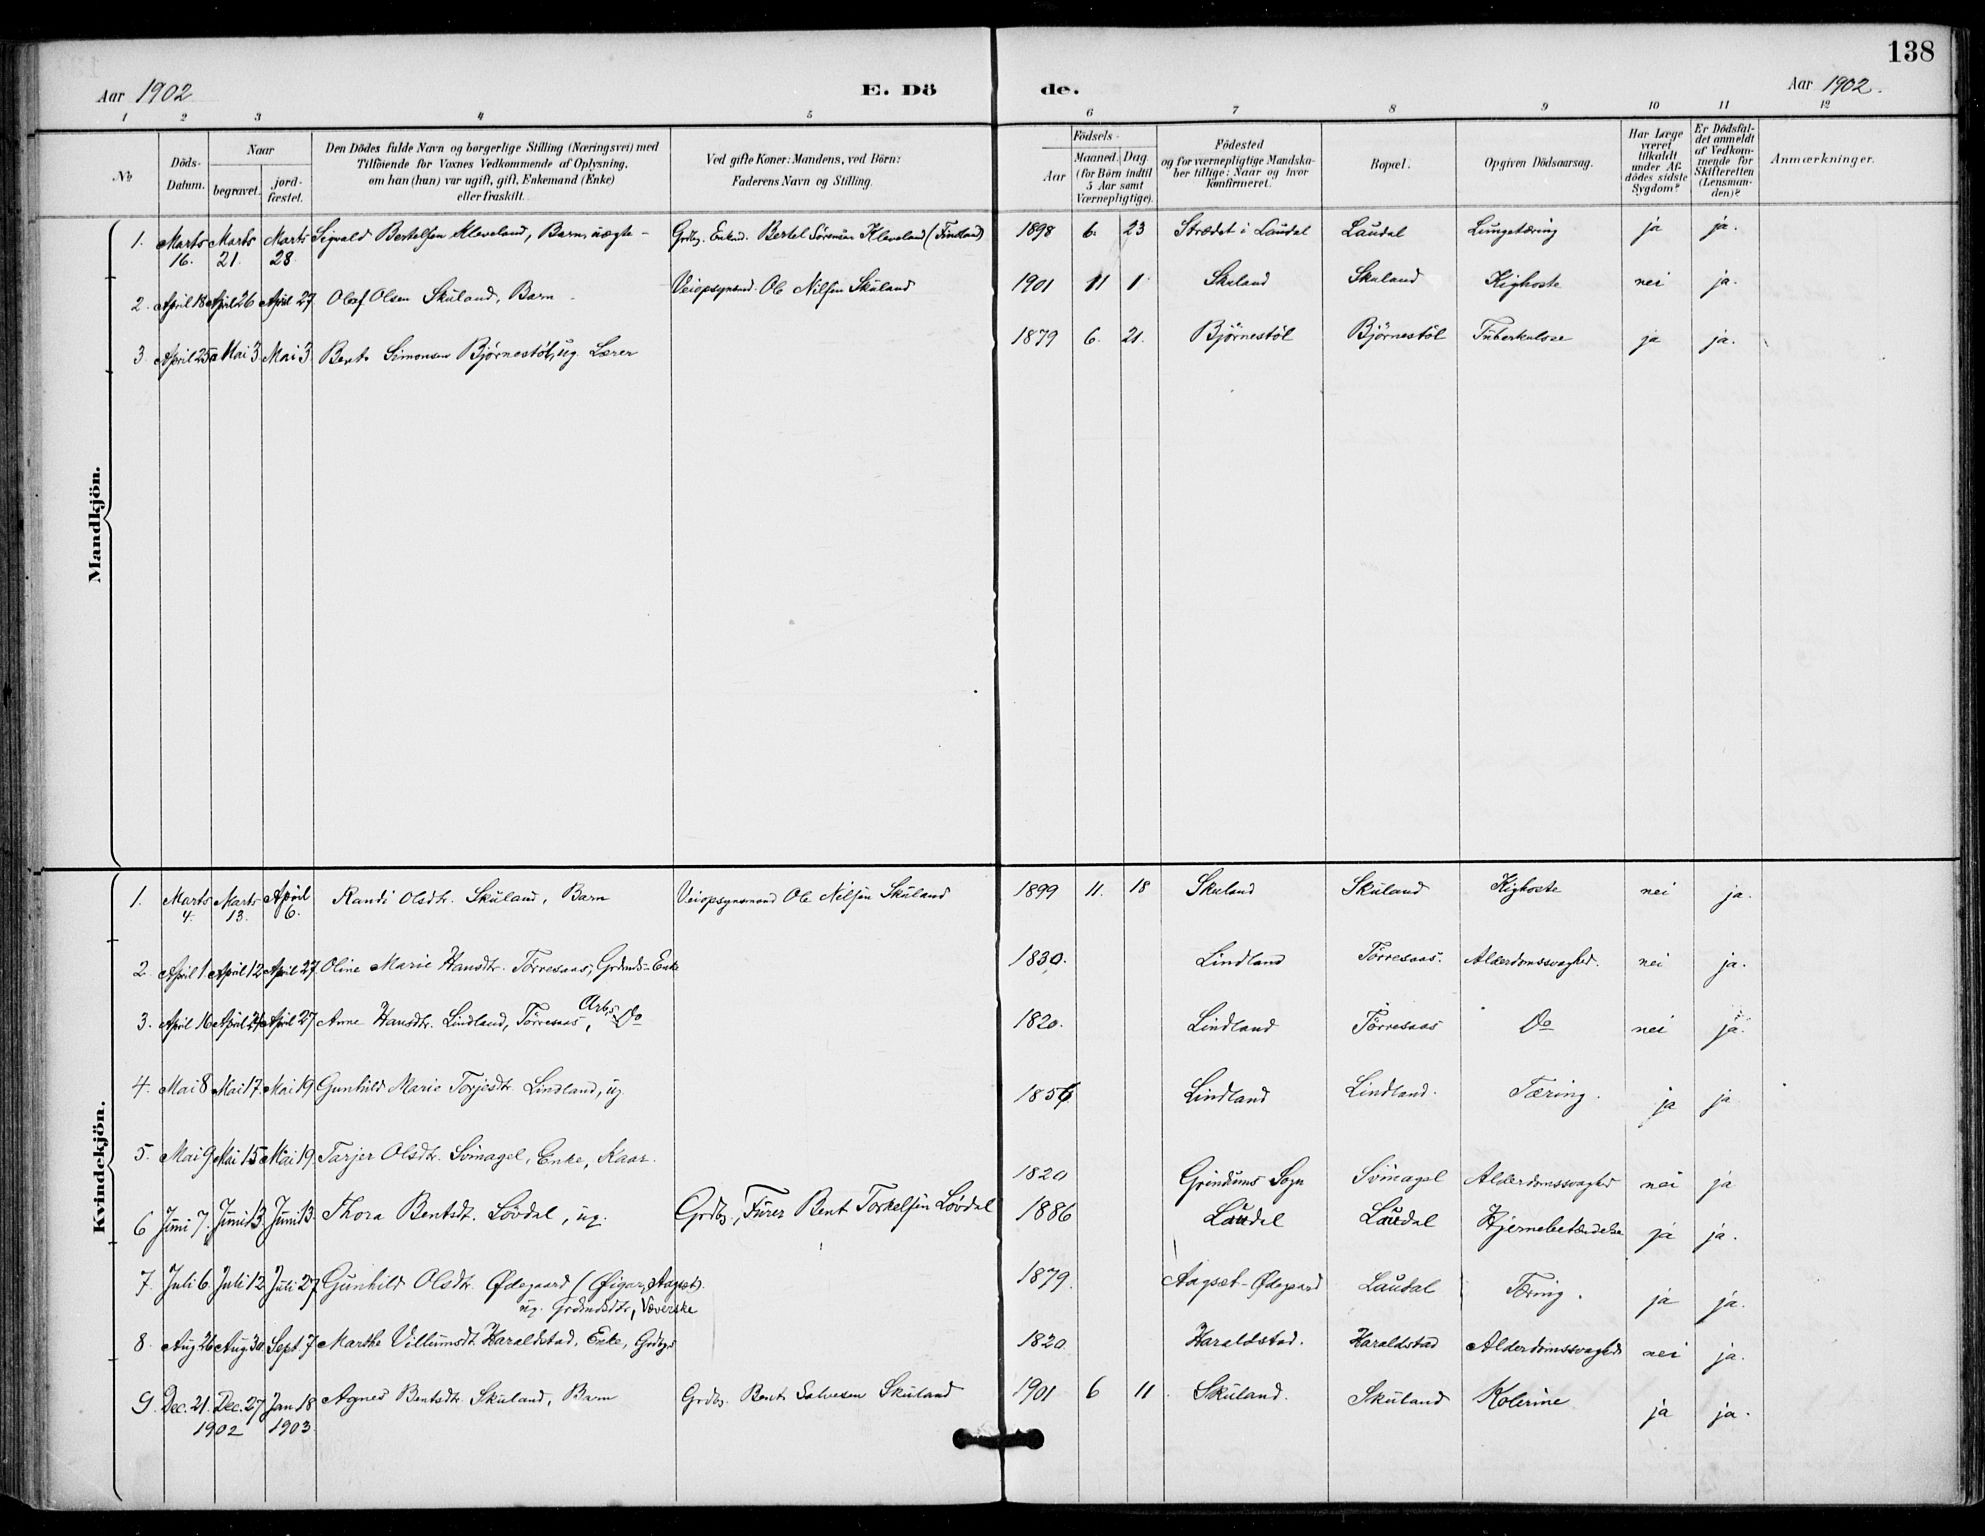 138
Aar 1902 E. Dö de. Aar 1902.
1 2 3 4 5 6 7 8 9 10 11 12
№ Döds-Datum. Naar begravet. jord-fæstet. Den Dödes fulde Navn og borgerlige Stilling (Næringsvei) med Tilföiende for Voxnes Vedkommende af Oplysning, om han (hun) var ugift, gift, Enkemand (Enke) eller fraskilt. Ved gifte Koner: Mandens, ved Börn: Faderens Navn og Stilling. Födsels- Aar Maaned. Dag (for Börn indtil 5 Aar samt Værnepligtige). Födested og for værnepligtige Mandska-ber tillige: Naar og hvor konfirmeret. Bopæl. Opgiven Dödsaarsag. Har Læge været tilkaldt under Af-dödes sidste Sygdom? Er Dödsfal-det anmeldt af Vedkom-mende for Skifteretten (Lensman-den)? Anmærkninger.
Mandkjön.
1. Marts 16. Marts 21. Marts 28. Sigvald Bertelsen Kleveland, Barn, uægte - Grdbr. Enkm. Bertel Sörensen Kleveland (Finsland) 1898 6. 23 Strædet i Laudal Laudal Lungetæring ja ja.
2. April 18 April 26 April 27 Olaf Olsen Skuland, Barn - Veiopsynsmd. Ole Nilsen Skuland 1901 11 1 Skuland Skuland Kighoste nei ja.
3. April 25 Mai 3 Mai 3. Bent Simonsen Bjørnestöl, ug. Lærer 1879 6. 21. Bjørnestöl Bjørnestöl Tuberkulose ja ja.
Kvindekjön.
1. Marts 4. Marts 13. April 6. Randi Olsdtr. Skuland, Barn Veiopsynsmand Ole Nilsen Skuland 1899 11. 18 Skuland Skuland Kighoste nei ja.
2. April 1 April 12 April 27 Oline Marie Hansdtr. Törresaas, Grdmds-Enke 1830. Lindland Törresaas. Alderdomssvaghed. nei ja.
3. April 16 April 24 April 27 Anne Hansdtr. Lindland, Törresaas, Arbs. Do 1820. Lindland Törresaas Do nei ja.
4. Mai 8 Mai 17. Mai 19 Gunhild Marie Torjesdtr. Lindland, ug. 1856 Lindland Lindland. Tæring. ja ja
5. Mai 9 Mai 15 Mai 19. Tarjer Olsdtr. Svinagel, Enke, Kaar. 1820 Grindums Sogn Svinagel Alderdomssvaghed nei ja
6 Juni 7. Juni 13 Juni 13. Thora Bentsdt. Løvdal, ug. Grdbr., Fører Bent Torkelsen Løvdal 1886 Laudal Laudal Hjernebetændelse ja ja.
7. Juli 6. Juli 12 Juli 27 Gunhild Olsdtr. Ødegaard (Øigar, Aagset).
ug. Grdmdsdtr, Væverske 1879. Aagset-Ødegaard Laudal Tæring. ja ja.
8. Aug 26 Aug 30 Sept. 7 Marthe Villumsdt. Haraldstad, Enke, Grdbgs 1820. Haraldstad. Haraldstad Alderdomssvaghed nei ja.
9. Dec. 21. Dec. 27 Jan 18 Agnes Bentsdtr. Skuland, Barn Grdbr. Bent Salvesen Skuland 1901 6 11. Skuland. Skuland Kolerine ja ja.
1902 1903.